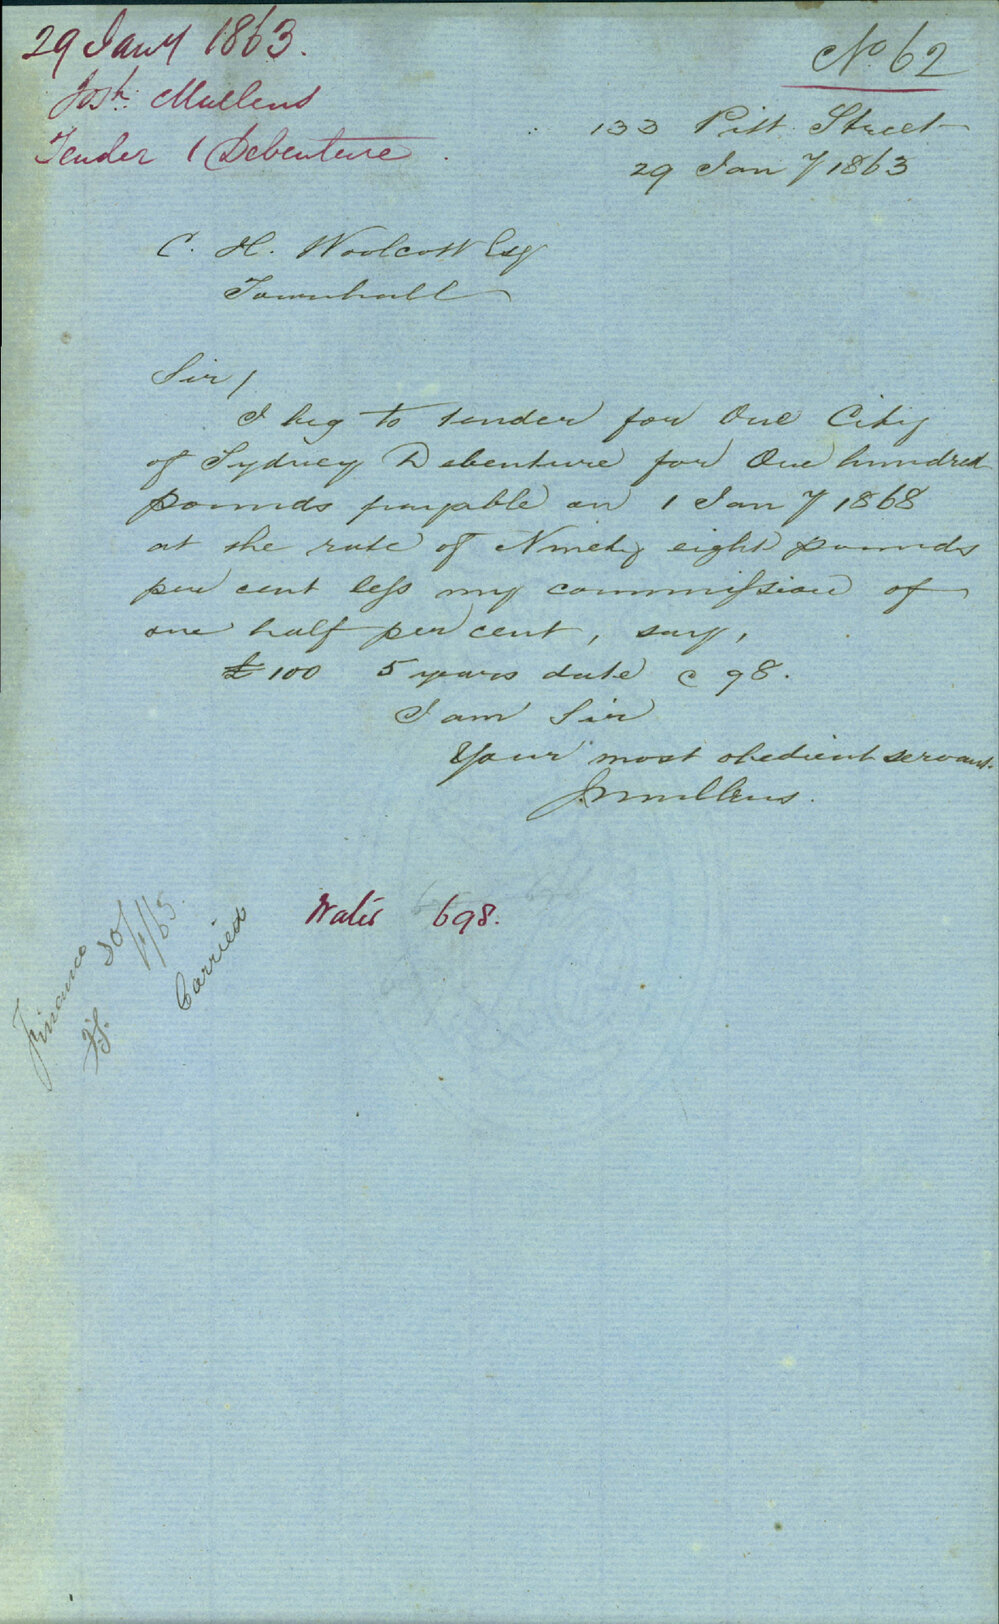 29 Jany 1863.
Josh. Mullens
Tender 1 Debenture
No. 62
133 Pitt Street
29 Jany 1863
C. H. Woolcott Esq
Townhall
Sir /
I beg to tender for One City
of Sydney Debenture for One hundred
pounds payable on 1 Jany 1868
at the rate of Ninety eight pounds
per cent less my commission of
one half per cent, say,
£100 5 years date @ 98.
I am Sir
Your most obedient servant.
J Mullens.
Water 698.
Finance
30/1/63.
Carried